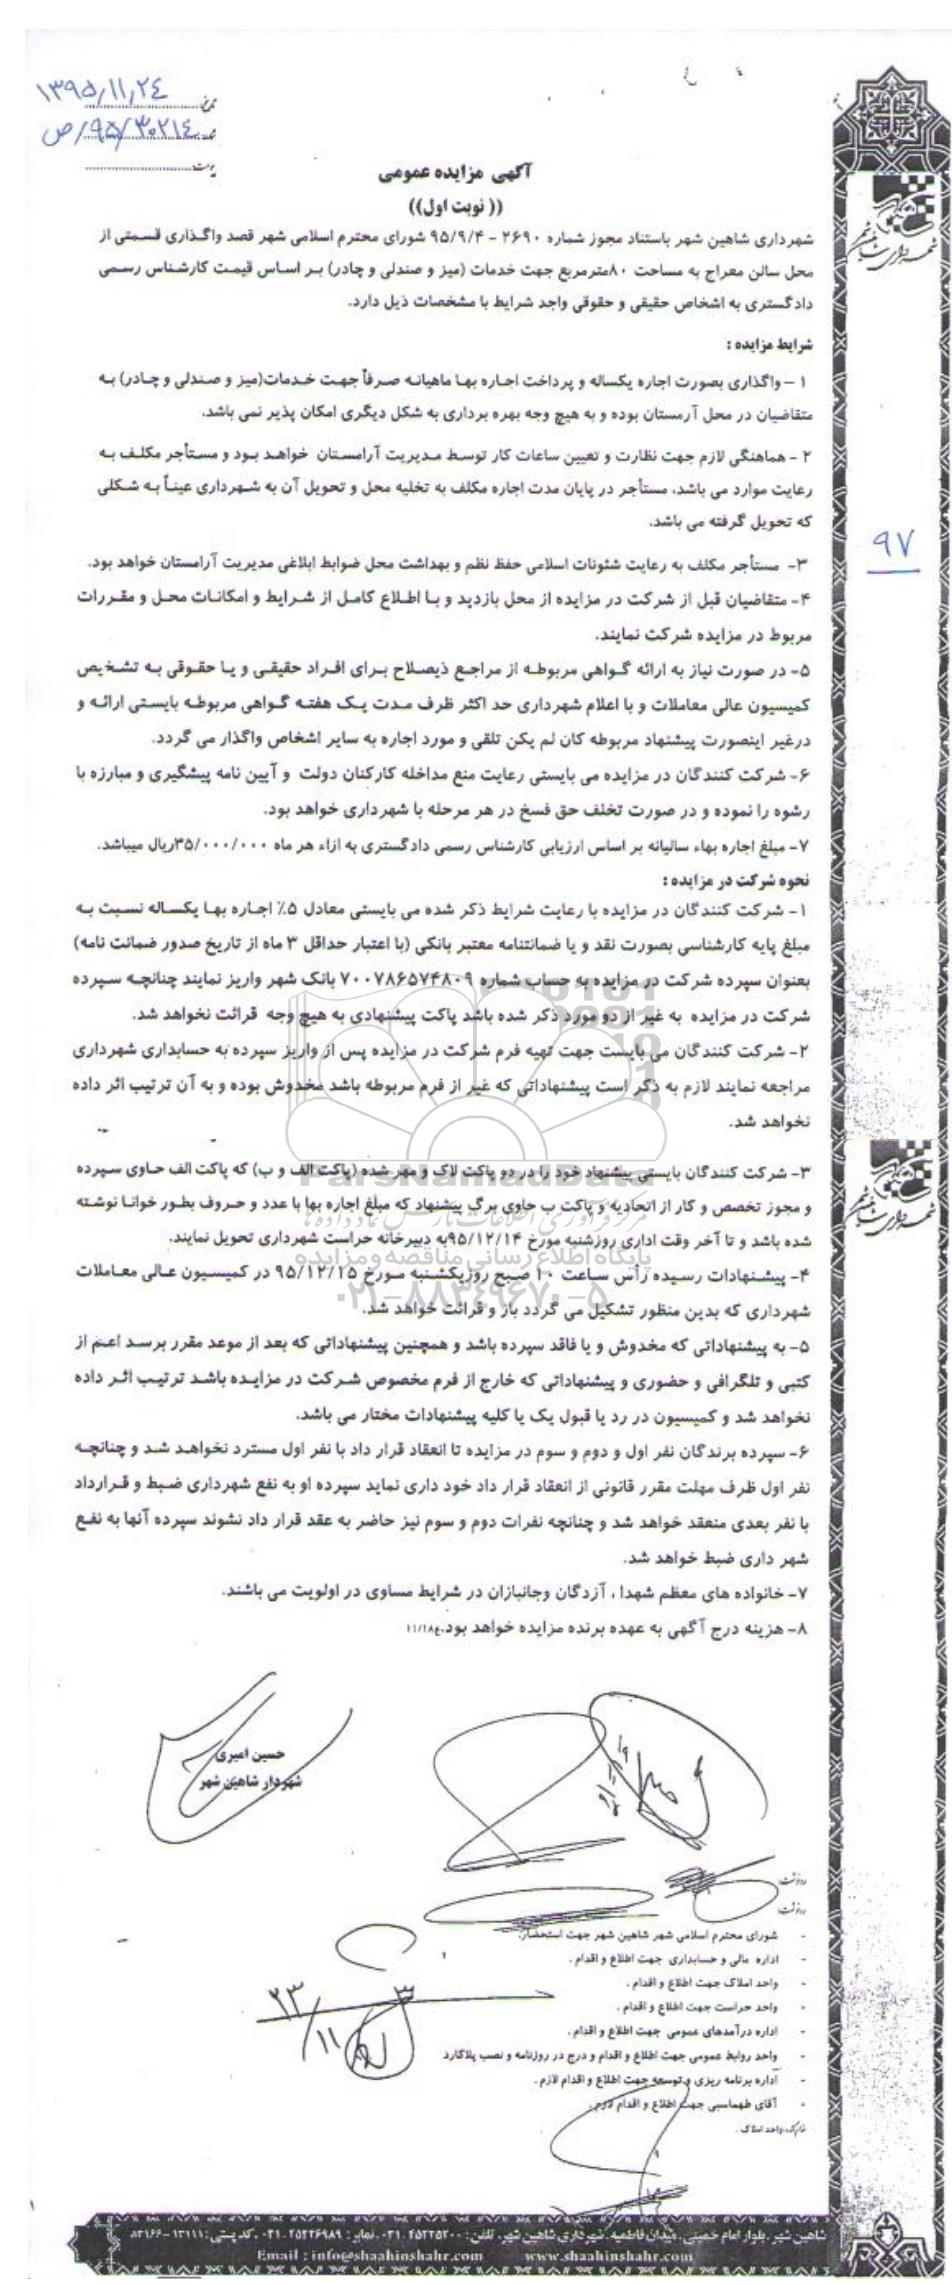 ۱۳۹۵/۱۱/۲۴
۹۵/۳۰۲۱۴/ص
آگهی مزایده عمومی
(( نوبت اول))
شهرداری شاهین شهر باستناد مجوز شماره ۲۶۹۰ - ۹۵/۹/۴ شورای محترم اسلامی شهر قصد واگذاری قسمتی از
محل سالن معراج به مساحت ۸۰مترمربع جهت خدمات (میز و صندلی و چادر) بر اساس قیمت کارشناس رسمی
دادگستری به اشخاص حقیقی و حقوقی واجد شرایط با مشخصات ذیل دارد.
شرایط مزایده :
۱ – واگذاری بصورت اجاره یکساله و پرداخت اجاره بها ماهیانه صرفاً جهت خدمات(میز و صندلی و چادر) به
متقاضیان در محل آرمستان بوده و به هیچ وجه بهره برداری به شکل دیگری امکان پذیر نمی باشد.
۲ - هماهنگی لازم جهت نظارت و تعیین ساعات کار توسط مدیریت آرامستان خواهد بود و مستأجر مکلف به
رعایت موارد می باشد، مستأجر در پایان مدت اجاره مکلف به تخلیه محل و تحویل آن به شهرداری عیناً به شکلی
که تحویل گرفته می باشد.
۹۷
۳- مستأجر مکلف به رعایت شئونات اسلامی حفظ نظم و بهداشت محل ضوابط ابلاغی مدیریت آرامستان خواهد بود.
۴- متقاضیان قبل از شرکت در مزایده از محل بازدید و با اطلاع کامل از شرایط و امکانات محل و مقررات
مربوط در مزایده شرکت نمایند.
۵- در صورت نیاز به ارائه گواهی مربوطه از مراجع ذیصلاح برای افراد حقیقی و یا حقوقی به تشخیص
کمیسیون عالی معاملات و با اعلام شهرداری حد اکثر ظرف مدت یک هفته گواهی مربوطه بایستی ارائه و
درغیر اینصورت پیشنهاد مربوطه کان لم یکن تلقی و مورد اجاره به سایر اشخاص واگذار می گردد.
۶- شرکت کنندگان در مزایده می بایستی رعایت منع مداخله کارکنان دولت و آیین نامه پیشگیری و مبارزه با
رشوه را نموده و در صورت تخلف حق فسخ در هر مرحله با شهرداری خواهد بود.
۷- مبلغ اجاره بهاء سالیانه بر اساس ارزیابی کارشناس رسمی دادگستری به ازاء هر ماه ۳۵/۰۰۰/۰۰۰ریال میباشد.
نحوه شرکت در مزایده :
۱- شرکت کنندگان در مزایده با رعایت شرایط ذکر شده می بایستی معادل ۵٪ اجاره بها یکساله نسبت به
مبلغ پایه کارشناسی بصورت نقد و یا ضمانتنامه معتبر بانکی (با اعتبار حداقل ۳ ماه از تاریخ صدور ضمانت نامه)
بعنوان سپرده شرکت در مزایده به حساب شماره ۷۰۰۷۸۶۵۷۴۸۰۹ بانک شهر واریز نمایند چنانچه سپرده
شرکت در مزایده به غیر از دو مورد ذکر شده باشد پاکت پیشنهادی به هیچ وجه قرائت نخواهد شد.
۲- شرکت کنندگان می بایست جهت تهیه فرم شرکت در مزایده پس از واریز سپرده به حسابداری شهرداری
مراجعه نمایند لازم به ذکر است پیشنهاداتی که غیر از فرم مربوطه باشد مخدوش بوده و به آن ترتیب اثر داده
نخواهد شد.
۳- شرکت کنندگان بایستی پیشنهاد خود را در دو پاکت لاک و مهر شده (پاکت الف و ب) که پاکت الف حاوی سپرده
و مجوز تخصص و کار از اتحادیه و پاکت ب حاوی برگ پیشنهاد که مبلغ اجاره بها با عدد و حروف بطور خوانا نوشته
شده باشد و تا آخر وقت اداری روزشنبه مورخ ۹۵/۱۲/۱۴به دبیرخانه حراست شهرداری تحویل نمایند.
۴- پیشنهادات رسیده رأس ساعت ۱۰ صبح روزیکشنبه مورخ ۹۵/۱۲/۱۵ در کمیسیون عالی معاملات
شهرداری که بدین منظور تشکیل می گردد باز و قرائت خواهد شد.
۵- به پیشنهاداتی که مخدوش و یا فاقد سپرده باشد و همچنین پیشنهاداتی که بعد از موعد مقرر برسد اعم از
کتبی و تلگرافی و حضوری و پیشنهاداتی که خارج از فرم مخصوص شرکت در مزایده باشد ترتیب اثر داده
نخواهد شد و کمیسیون در رد یا قبول یک یا کلیه پیشنهادات مختار می باشد.
۶- سپرده برندگان نفر اول و دوم و سوم در مزایده تا انعقاد قرار داد با نفر اول مسترد نخواهد شد و چنانچه
نفر اول ظرف مهلت مقرر قانونی از انعقاد قرار داد خود داری نماید سپرده او به نفع شهرداری ضبط و قرارداد
با نفر بعدی منعقد خواهد شد و چنانچه نفرات دوم و سوم نیز حاضر به عقد قرار داد نشوند سپرده آنها به نفع
شهر داری ضبط خواهد شد.
۷- خانواده های معظم شهدا ، آزدگان وجانبازان در شرایط مساوی در اولویت می باشند.
۸- هزینه درج آگهی به عهده برنده مزایده خواهد بود.ع۱۱/۱۸
ParsNamadData
پایگاه اطلاع رسانی مناقصه و مزایده
۰۲۱-۸۸۳۴۹۶۷۰-۵
حسین امیری
شهردار شاهین شهر
رونوشت:
رونوشت:
- شورای محترم اسلامی شهر شاهین شهر جهت استحضار.
- اداره مالی و حسابداری جهت اطلاع و اقدام .
- واحد املاک جهت اطلاع و اقدام .
- واحد حراست جهت اطلاع و اقدام .
- اداره درآمدهای عمومی جهت اطلاع و اقدام .
- واحد روابط عمومی جهت اطلاع و اقدام و درج در روزنامه و نصب پلاکارد
- اداره برنامه ریزی و توسعه جهت اطلاع و اقدام لازم .
- آقای طهماسبی جهت اطلاع و اقدام لازم .
شاهین شهر ، بلوار امام خمینی ، میدان فاطمیه ، شهرداری شاهین شهر ، تلفن : ۴۵۲۲۵۲۰۰ -۰۳۱ ، نمابر : ۴۵۲۲۶۹۸۹ -۰۳۱ ، کد پستی : ۱۳۱۱۱ - ۸۳۱۶۶
Email : info@shaahinshahr.com www.shaahinshahr.com